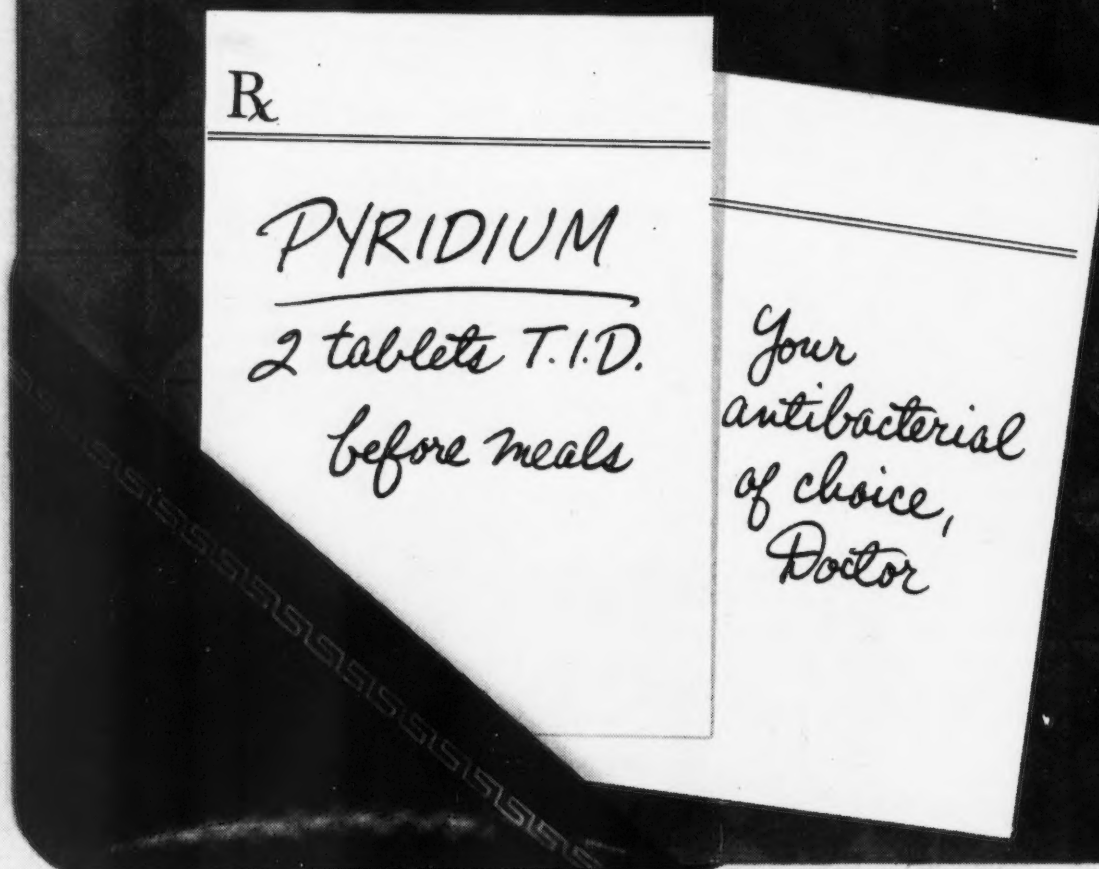 ℞
PYRIDIUM
2 tablets T.I.D.
before meals
Your
antibacterial
of choice,
Doctor